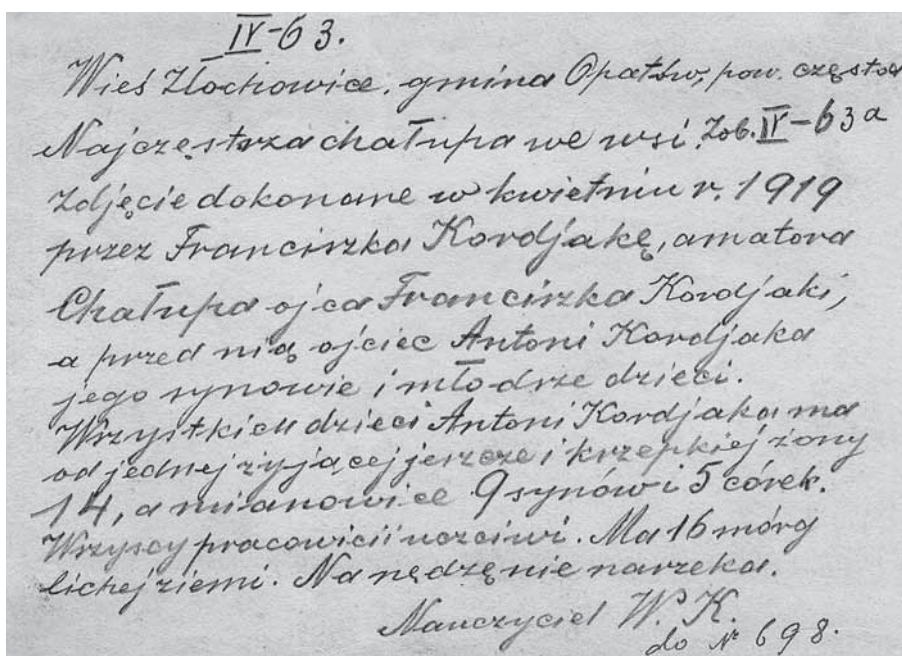 IV-63.
Wieś Złochowice, gmina Opatów, pow. częstoch
Najczęstrza chałupa we wsi. Zob. IV-63a
Zdjęcie dokonane w kwietniu r. 1919
przez Franciszka Kordjakę, amatora
Chałupa ojca Franciszka Kordjaki,
a przed nią ojciec Antoni Kordjaka
jego synowie i młodsze dzieci.
Wszystkich dzieci Antoni Kordjaka ma
od jednej żyjącej jeszcze i krzepkiej żony
14, a mianowice 9 synów i 5 córek.
Wszyscy pracowici i uczciwi. Ma 16 mórg
lichej ziemi. Na nędzę nie narzeka.
Nauczyciel W. K.
do № 698.